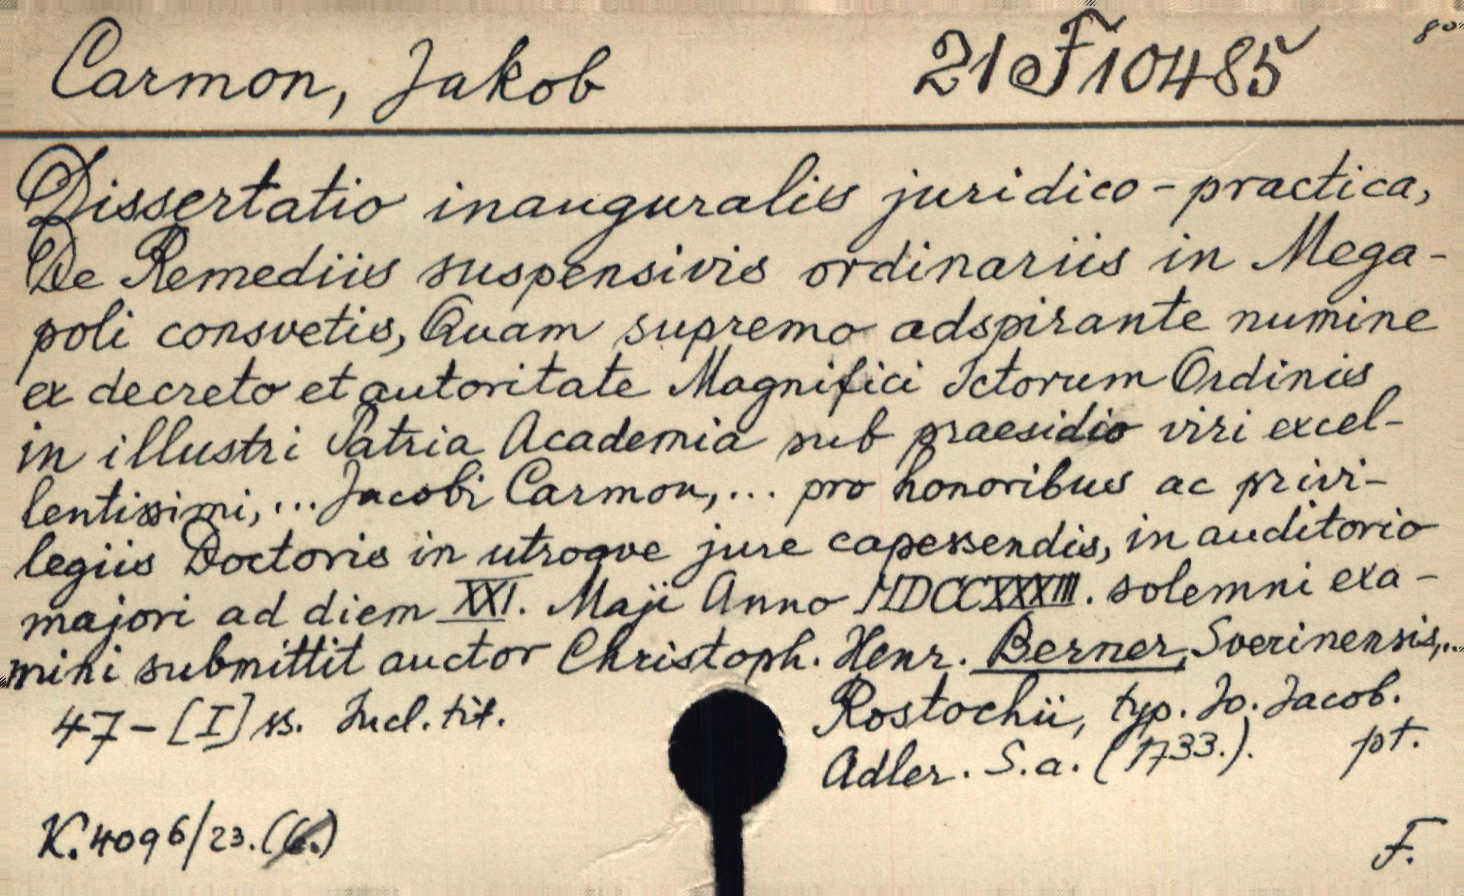 Carmon, Jakob 21 F 10485 80
Dissertatio inauguralis juridico-practica,
De Remediis suspensivis ordinariis in Mega-
poli consvetis, Quam supremo adspirante numine
ex decreto et autoritate Magnifici Ictorum Ordinis
in illustri Patria Academia sub praesidio viri excel-
lentissimi, ... Jacobi Carmon, ... pro honoribus ac privi-
legiis Doctoris in utroqve jure capessendis, in auditorio
majori ad diem XXI. Maji Anno MDCCXXXIII. solemni exa-
mini submittit auctor Christoph. Henr. Berner, Sverinensis,...
47-[I] ss. Incl. tit. Rostochii, typ. Jo. Jacob.
Adler. S.a. (1733.). pt.
K. 4096/23. (6.) F.